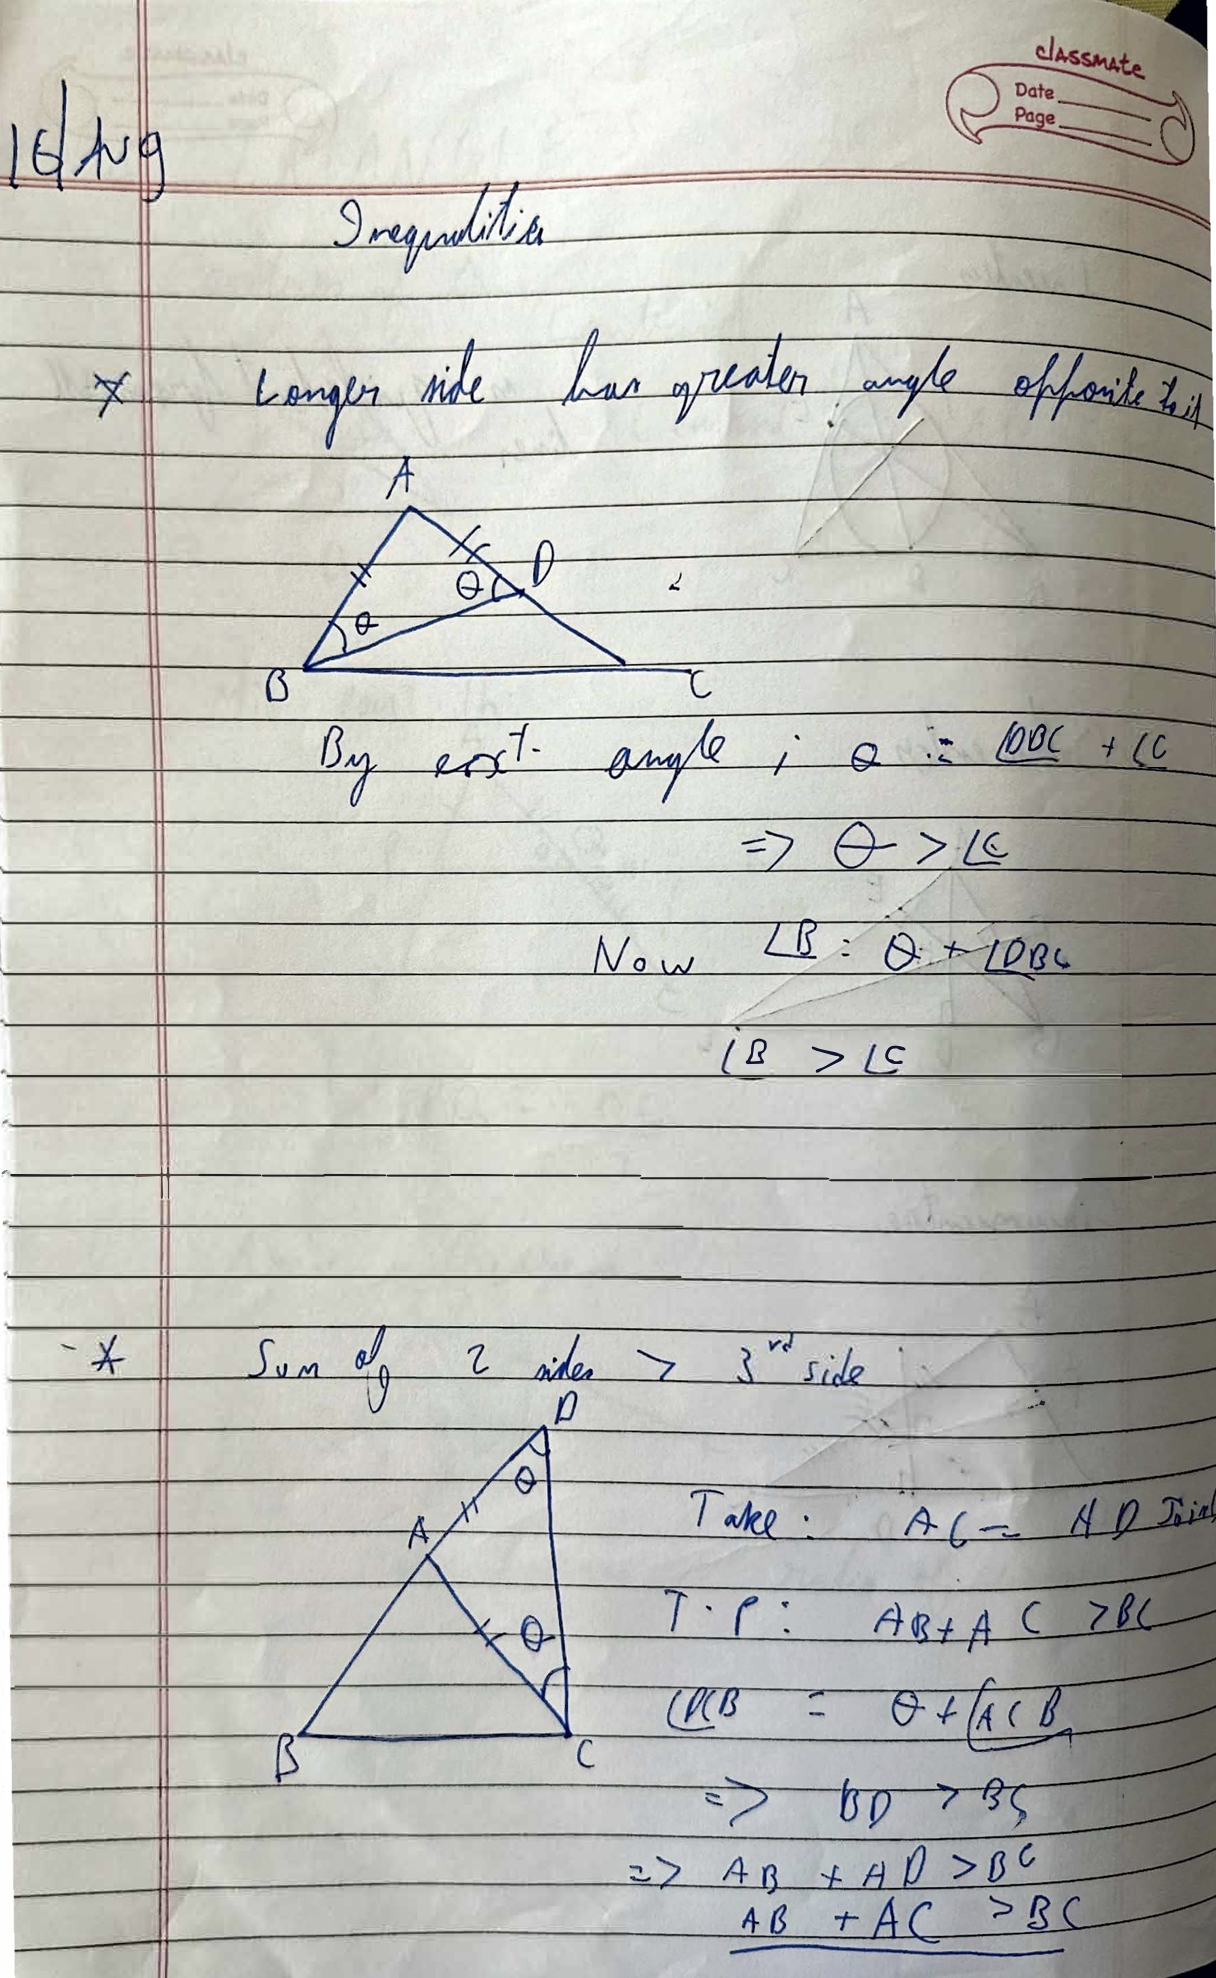 classmate
Date
Page
16/Aug
Inequalities
* Longer side has greater angle opposite to it
A
D
θ
θ
B
C
By ext. angle ; θ = ∠DBC + ∠C
=> θ > ∠C
Now ∠B = θ + ∠DBC
∠B > ∠C
* Sum of 2 sides > 3rd side
D
θ
A
Take : AC = AD Join
T.P : AB + AC > BC
θ
∠DCB = θ + ∠ACB
B
C
=> BD > BC
=> AB + AD > BC
AB + AC > BC